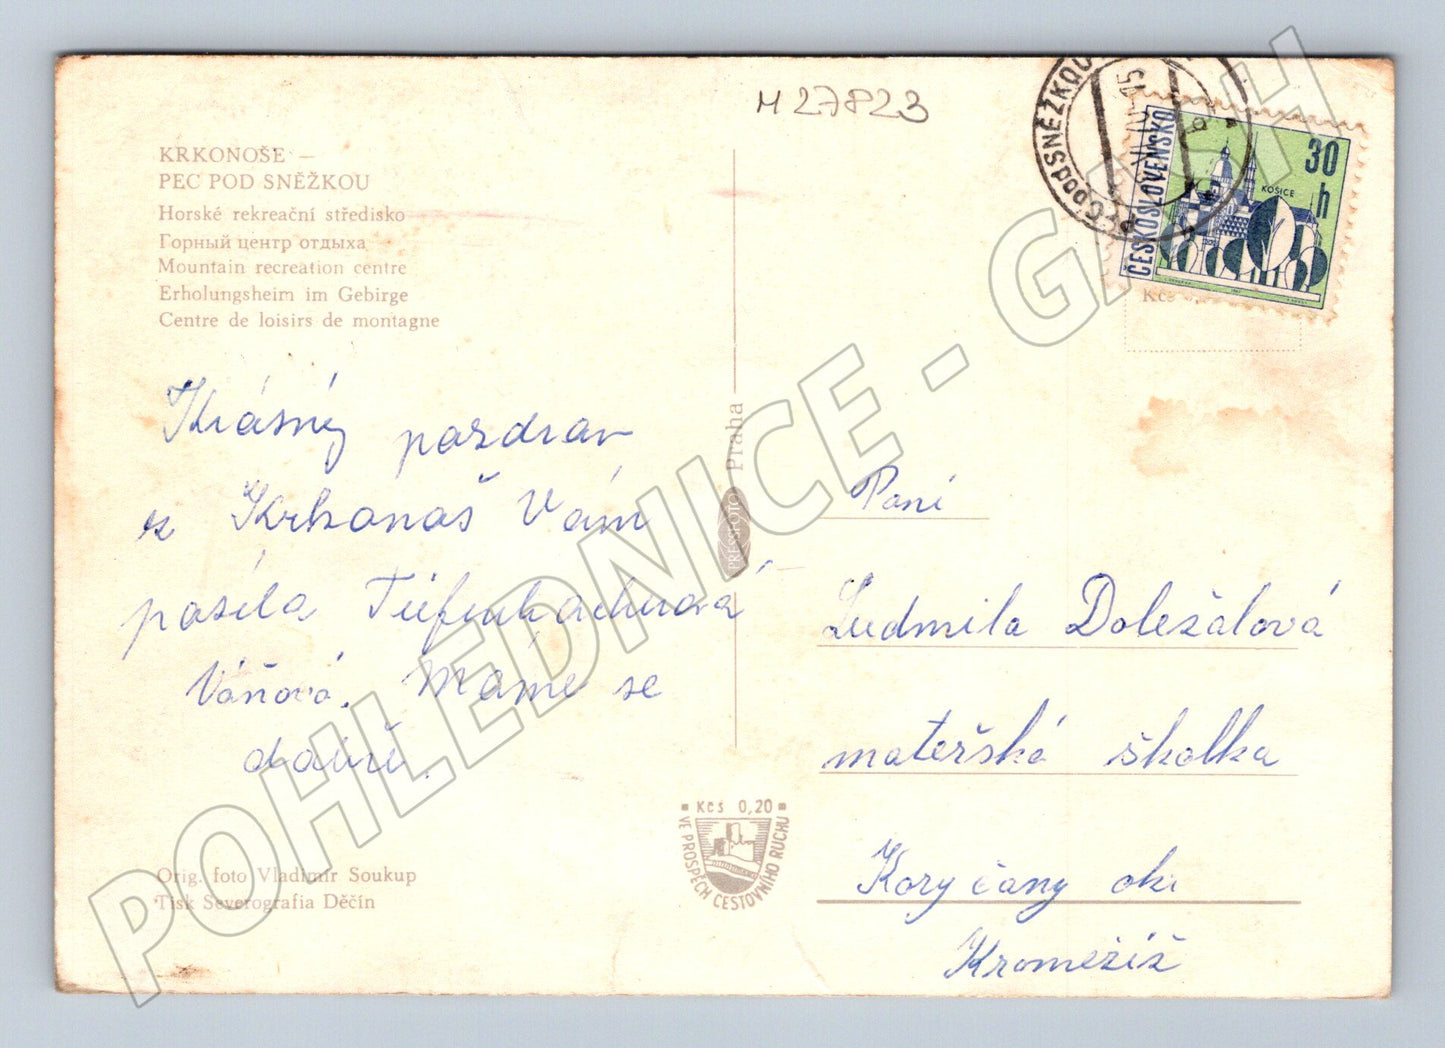 M 27823
KRKONOŠE —
PEC POD SNĚŽKOU
Horské rekreační středisko
Горный центр отдыха
Mountain recreation centre
Erholungsheim im Gebirge
Centre de loisirs de montagne
Krásný pozdrav
z Krkonoš Vám
posílá Tiefenbachrová
Váňová. Máme se
dobře.
Orig. foto Vladimír Soukup
Tisk Severografia Děčín
PRESSFOTO Praha
Kčs 0,20
VE PROSPĚCH CESTOVNÍHO RUCHU
POD SNĚŽKOU
ČESKOSLOVENSKO
30 h
KOŠICE
Kčs
Paní
Ludmila Doležalová
mateřská školka
Koryčany okr
Kroměříž
POHLEDNICE - GASH